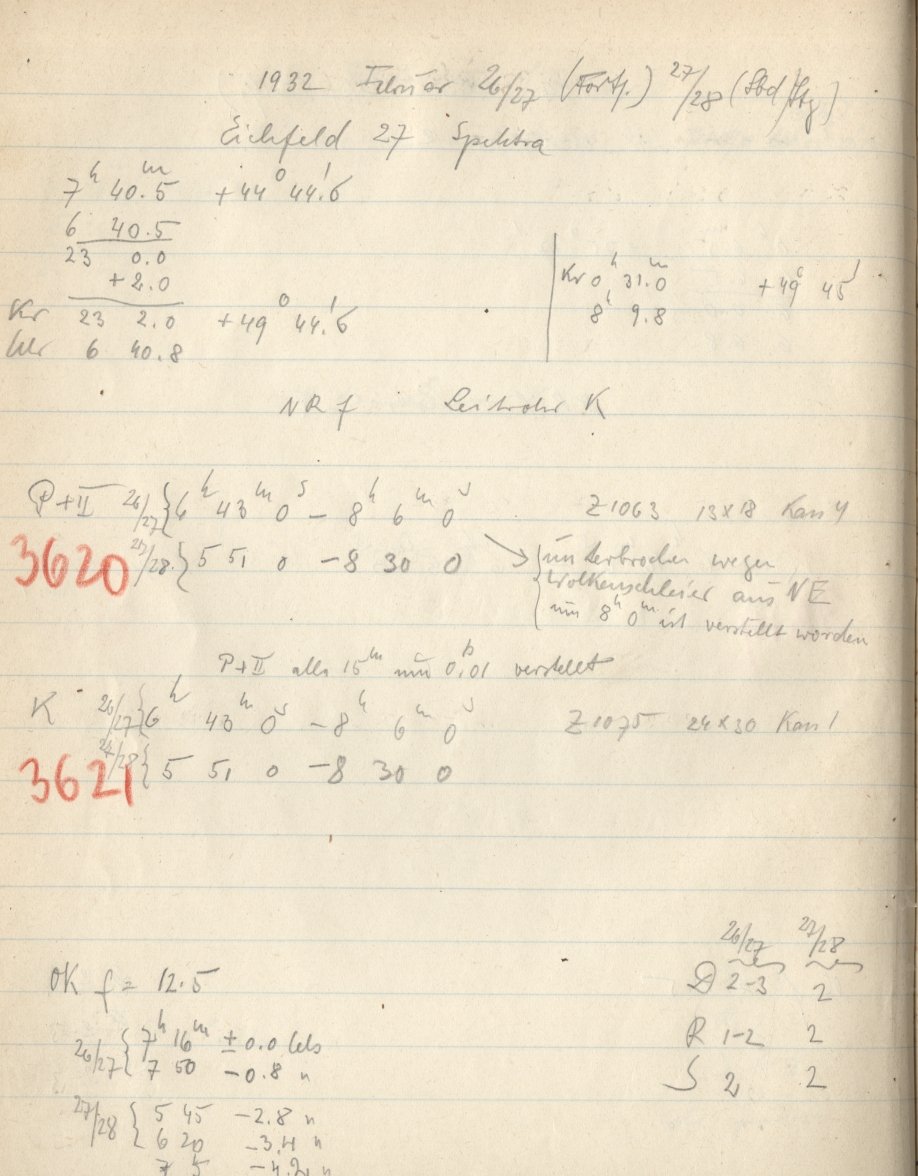 1932 Februar 26/27 (Forts.) 27/28 (Sbd/Stg)
Eichfeld 27 Spektra
7ʰ 40.5ᵐ +44° 44.'6
6 40.5
23 0.0
+2.0
Kr 23 2.0 +49° 44.'6
6 40.8
Kr 0ʰ 31.0ᵐ +49° 45'
8ʰ 9.8
NR f Leitrohr K
P+II 26/27 { 6ʰ 43ᵐ 0ˢ – 8ʰ 6ᵐ 0ˢ Z1063 13×18 Kan 4
3620 27/28. { 5 51 0 – 8 30 0
unterbrochen wegen
Wolkenschleier aus NE
um 8ʰ 0ᵐ ist verstellt worden
P+II alle 15ᵐ um 0,01 verstellt
K 26/27 { 6ʰ 43ᵐ 0ˢ – 8ʰ 6ᵐ 0ˢ Z1075 24×30 Kan 1
3621 27/28 { 5 51 0 – 8 30 0
26/27 27/28
OK f = 12.5
D 2-3 2
R 1-2 2
S 2 2
26/27 { 7ʰ 16ᵐ ± 0.0 Cels
7 50 – 0.8 "
27/28 { 5 45 – 2.8 "
6 20 – 3.4 "
7 5 – 4.2 "